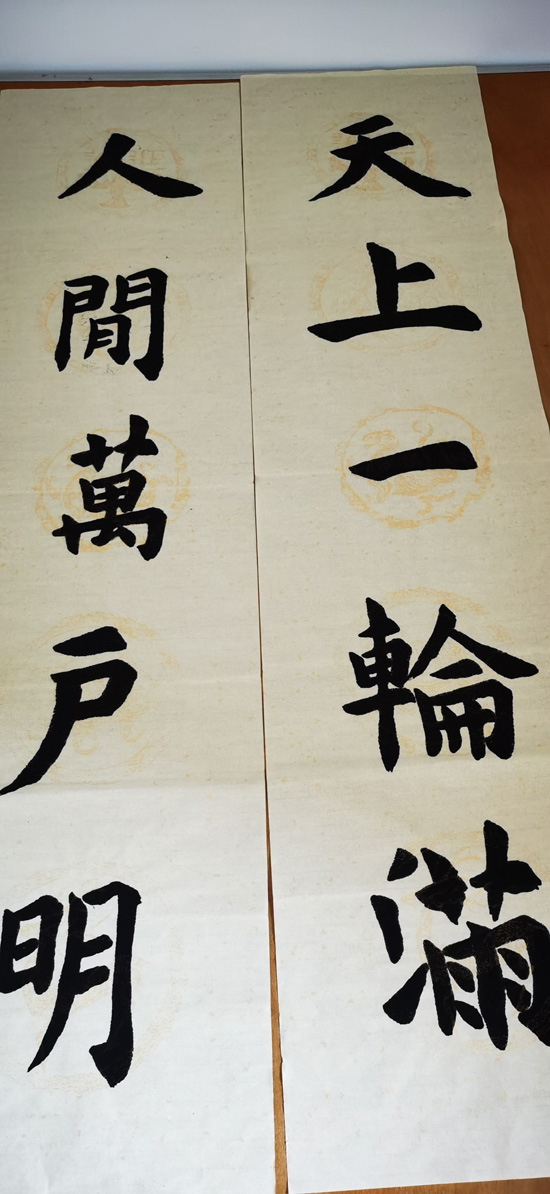 天上一輪滿
人間萬戶明